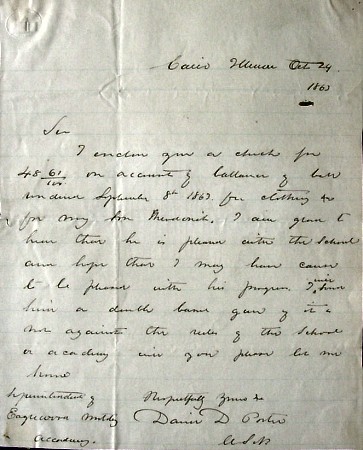 Cairo Illinois Oct 24
1863
Sir
I enclose you a check for
48 61/100 on account of ballance of bill
rendered September 8th 1863 for clothing &c
for my son I am glad to
hear that he is pleased with the school
and hope that I may have cause
to be pleased with his progress. I will send
him a double barrel gun if it is
not against the rules of the school
or academy will you please let me
know
Respectfully Yours &c
David D Porter
USN
Superintendent of
Eagleswood Military
Academy.